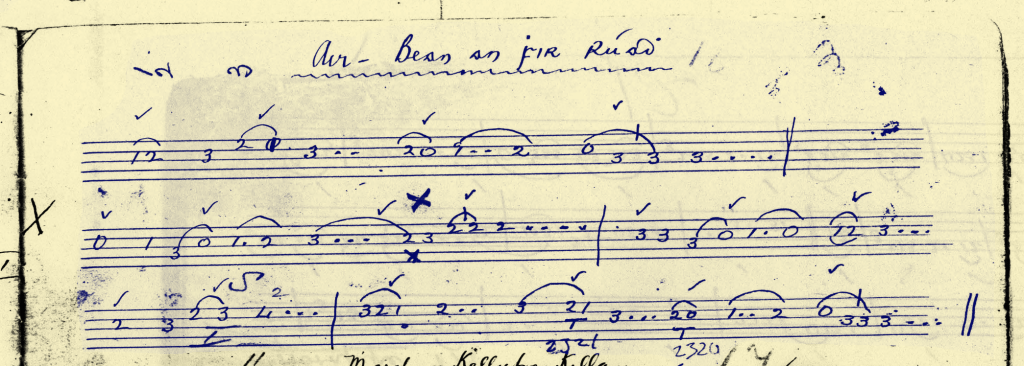 Air - Bean an Fir Rúad
12 3 20 3... 20 1.. 2 0 3 3 3.....
0 1 3 0 1.2 3... 2 3 2 2 2 ..... 3 3 3 0 1.0 12 3...
2 3 2 3 4... 321 2.. 3 21 3... 20 1.. 2 0 3 3 3...
2321 2320